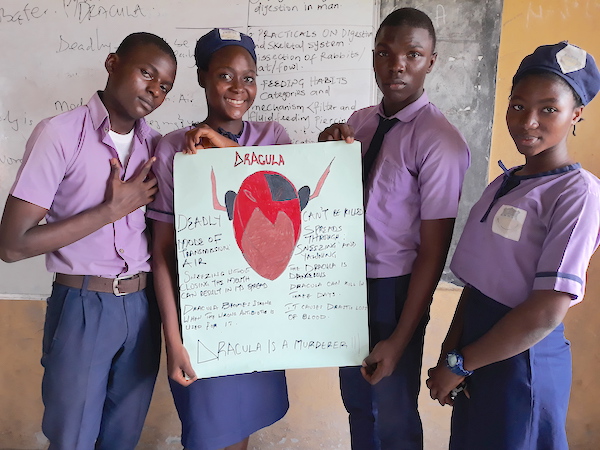 DRACULA
Deadly
digestion in man
PRACTICALS ON Digestion
and Skeletal System
Dissection of Rabbits/
Rat/fowl.
FEEDING HABITS
Categories and
mechanism (filter and
fluid feeding
DRACULA
DEADLY
MODE OF
TRANSMISSION
AIR
SNEEZING WITHOUT
CLOSING THE MOUTH
CAN RESULT IN ITS SPREAD
DRACULA BECOMES STRONG
WHEN THE WRONG ANTIBIOTIC IS
USED FOR IT
CAN'T BE KILLED
SPREADS
THROUGH
SNEEZING AND
YAWNING
THE DRACULA IS
DANGEROUS
DRACULA CAN KILL IN
THREE DAYS
IT CAUSES DRASTIC LOSS
OF BLOOD
DRACULA IS A MURDERER !!!